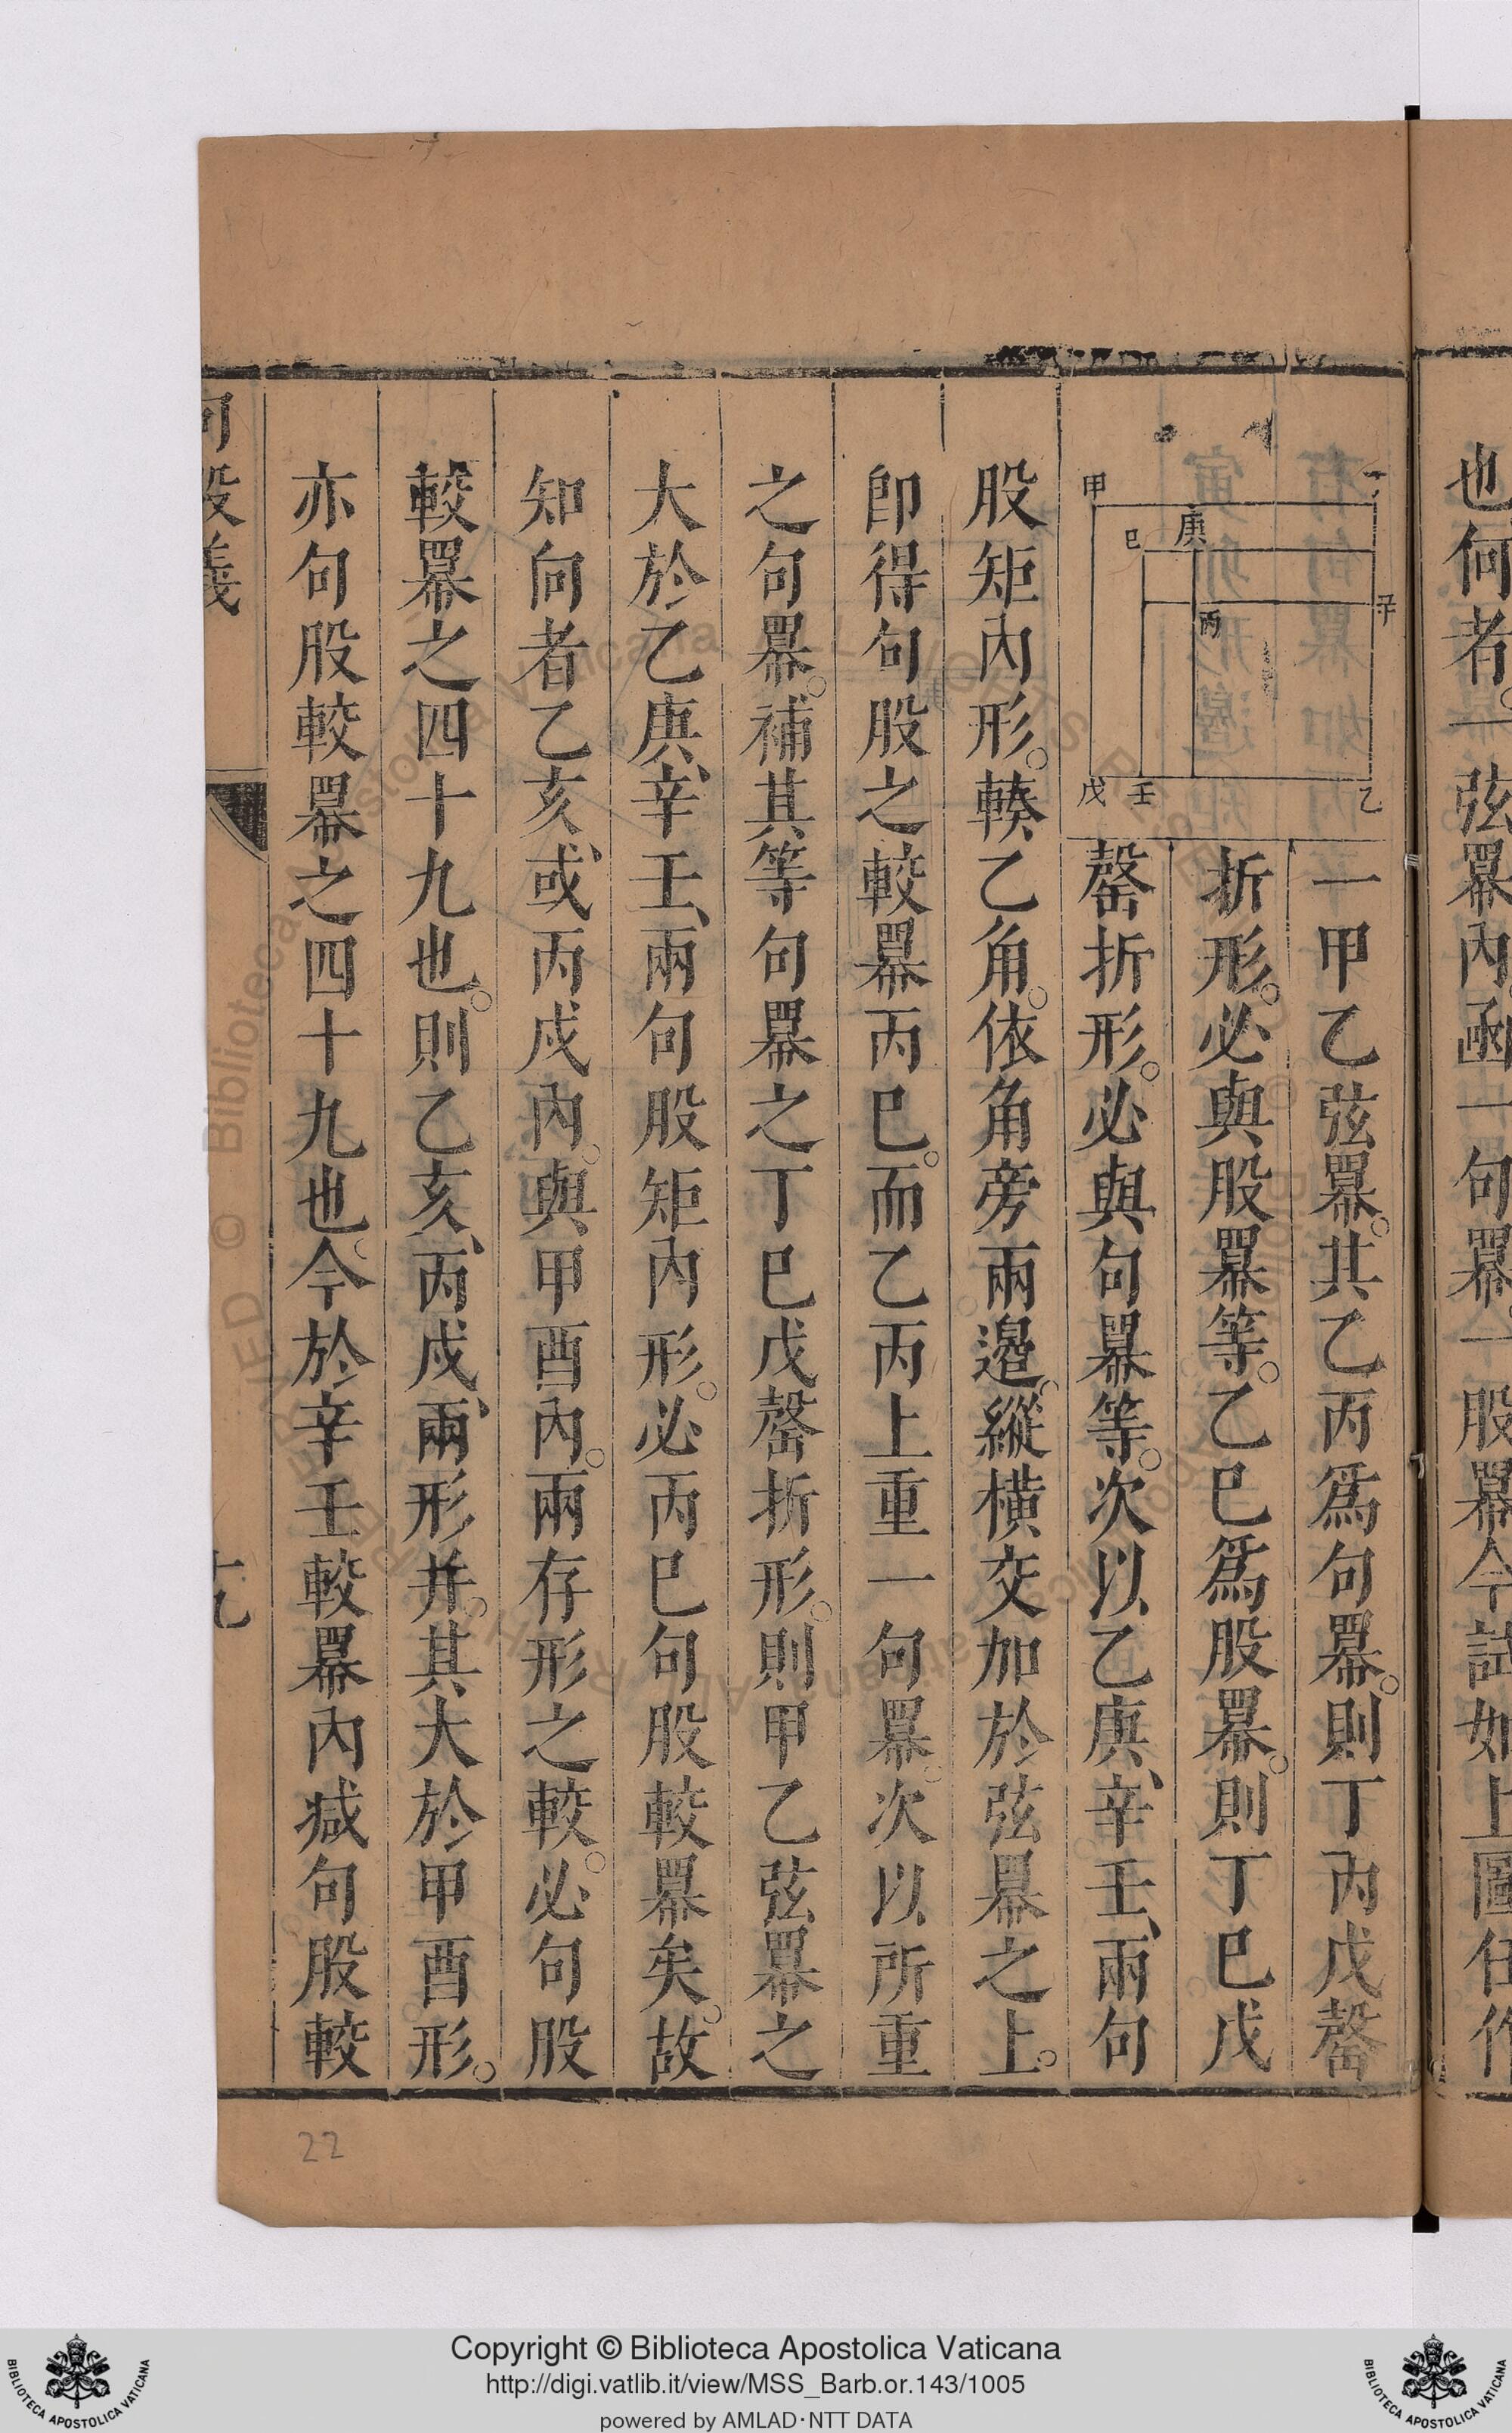 也何者。一弦羃内函一句羃一股羃今試如上圖任作
丁
甲
庚
巳
辛
丙
戊
壬
乙
一甲乙弦羃。其乙丙爲句羃。則丁丙戊罄
折形。必與股羃等。乙巳爲股羃。則丁巳戊
罄折形。必與句羃等。次以乙庚、辛壬、兩句
股矩内形。輳乙角。依角旁兩邉。縱横交加於弦羃之上。
卽得句股之較羃丙巳。而乙丙上重一句羃。次以所重
之句羃。補其等句羃之丁巳戊罄折形。則甲乙弦羃之
大於乙庚、辛壬、兩句股矩内形。必丙巳句股較羃矣。故
知向者乙亥、或丙戍内。與甲酉内。兩存形之較。必句股
較羃之四十九也。則乙亥、丙戍、兩形并。其大於甲酉形。
亦句股較羃之四十九也。今於辛壬較羃内减句股較
句股義
十九
22
Copyright © Biblioteca Apostolica Vaticana
http://digi.vatlib.it/view/MSS_Barb.or.143/1005
powered by AMLAD·NTT DATA
BIBLIOTECA APOSTOLICA VATICANA
BIBLIOTECA APOSTOLICA VATICANA